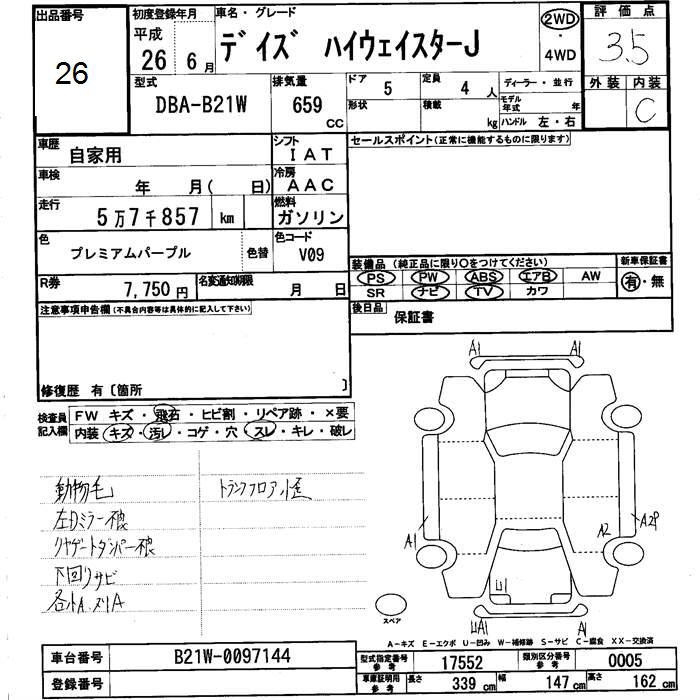 出品番号
26
初度登録年月
平成
26年6月
車名・グレード
デイズ ハイウェイスターJ
2WD
・
4WD
評価点
3.5
外装 内装
C
型式
DBA-B21W
排気量
659
CC
ドア
5
定員
4人
形状
積載
kg
ディーラー・並行
モデル年式 年
ハンドル 左・右
車歴
自家用
シフト
IAT
セールスポイント(正常に機能するものに限ります)
車検
年 月( 日)
冷房
AAC
走行
5万7千857 km
燃料
ガソリン
色
プレミアムパープル
色替
色コード
V09
装備品 (純正品に限り○をつけてください)
PS PW ABS エアB AW
SR ナビ TV カワ
新車保証書
有・無
R券
7,750円
名変通知期限
月 日
後日品
保証書
注意事項申告欄(不具合内容等は具体的に記入して下さい)
修復歴 有〔箇所 〕
検査員記入欄
FW キズ・飛石・ヒビ割・リペア跡・×要
内装 キズ・汚レ・コゲ・穴・スレ・キレ・破レ
動物毛
左Dミラー不良
リヤゲートダンパー不良
下回りサビ
各小A.ズリA
トランクフロア小怪
A1 A1
A1
A2
A2P
U1
UA1
A1
スペア
A-キズ E-エクボ U-凹み W-補修跡 S-サビ C-腐食 XX-交換済
車台番号
B21W-0097144
登録番号
型式指定番号
参考
17552
類別区分番号
参考
0005
車庫証明用
参考
長さ
339 cm
幅
147 cm
高さ
162 cm